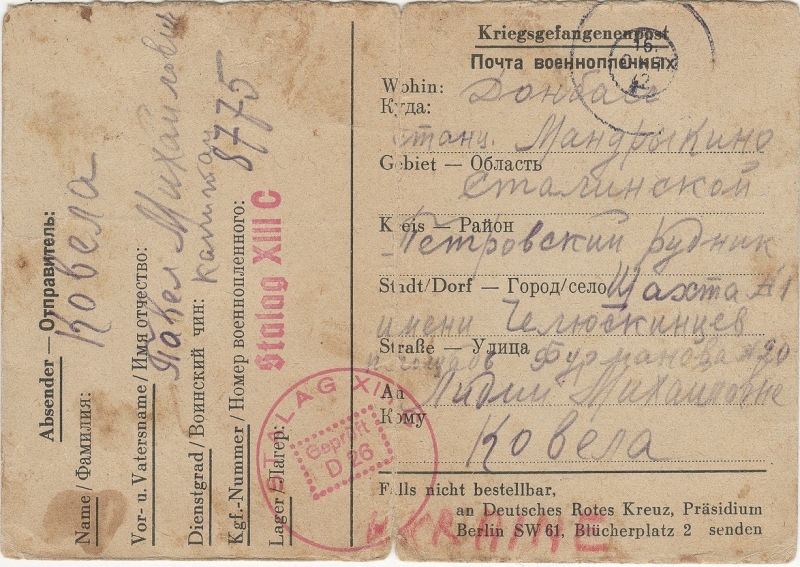 Absender — Отправитель:
Name/Фамилия: Ковела
Vor- u. Vatersname/Имя отчество: Павел Михайлович
Dienstgrad/Воинский чин: капитан
Kgf.-Nummer/Номер военнопленного: 8775
Lager/Лагер: Stalag XIII C
STALAG XIII
Geprüft
D 26
Kriegsgefangenenpost
Почта военнопленных
15.
42
Wohin: Донбасс
Куда:
станц. Мандрыкино
Gebiet — Область
Сталинской
Kreis — Район
Петровский рудник
Stadt/Dorf — Город/село Шахта №1
имени Челюскинцев
Straße — Улица
площадь Фурманова №20
An Лидии Михайловне
Кому
Ковела
Falls nicht bestellbar,
an Deutsches Rotes Kreuz, Präsidium
Berlin SW 61, Blücherplatz 2 senden
UKRAINE